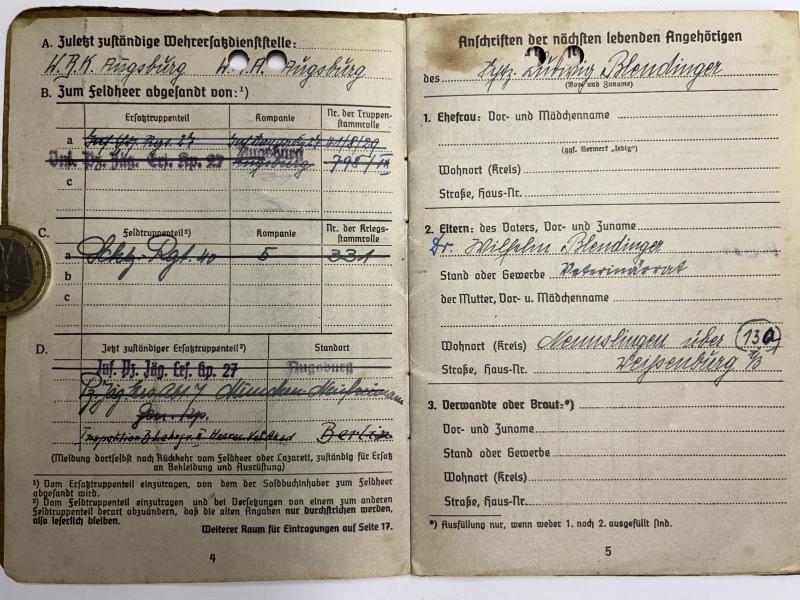 A. Zuletzt zuständige Wehrersatzdienststelle:
W.B.K. Augsburg W. Augsburg
B. Zum Feldheer abgesandt von:¹)
Ersatztruppenteil Kompanie Nr. der Truppen-
stammrolle
a
Inf. Pz. Jäg. Ers. Kp. 27 Augsburg 798/
c
C. Feldtruppenteil²) Kompanie Nr. der Kriegs-
stammrolle
a Schtz. Rgt. 40 5 331
b
c
D. Jetzt zuständiger Ersatztruppenteil²) Standort
Inf. Pz. Jäg. Ers. Kp. 27 Augsburg
München
Gen. Kp.
Inspektion Berlin
(Meldung dortselbst nach Rückkehr vom Feldheer oder Lazarett, zuständig für Ersatz
an Bekleidung und Ausrüstung)
¹) Vom Ersatztruppenteil einzutragen, von dem der Soldbuchinhaber zum Feldheer
abgesandt wird.
²) Vom Feldtruppenteil einzutragen und bei Versetzungen von einem zum anderen
Feldtruppenteil derart abzuändern, daß die alten Angaben nur durchstrichen werden,
also leserlich bleiben.
Weiterer Raum für Eintragungen auf Seite 17.
4
Anschriften der nächsten lebenden Angehörigen
des Ludwig Blendinger
(Vor- und Zuname)
1. Ehefrau: Vor- und Mädchenname
(ggf. Vermerk „ledig")
Wohnort (Kreis)
Straße, Haus-Nr.
2. Eltern: des Vaters, Vor- und Zuname
Dr. Wilhelm Blendinger
Stand oder Gewerbe Veterinärrat
der Mutter, Vor- u. Mädchenname
Wohnort (Kreis) Nennslingen über 13a
Straße, Haus-Nr. Weissenburg i/B
3. Verwandte oder Braut:*)
Vor- und Zuname
Stand oder Gewerbe
Wohnort (Kreis)
Straße, Haus-Nr.
*) Ausfüllung nur, wenn weder 1. noch 2. ausgefüllt sind.
5